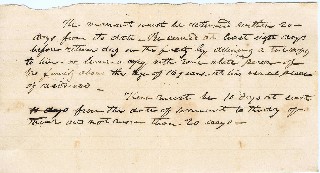 The warrant must be returned within 20
days from its date - Be served at least eight days
before return day on the party by delivering a true copy
to him or leave a copy with some white person of
the family above the age of 16 years. at his usual place
of residence -
There must be 10 days at least
from the date of warrant to the day of
trial and not more than 20 days -